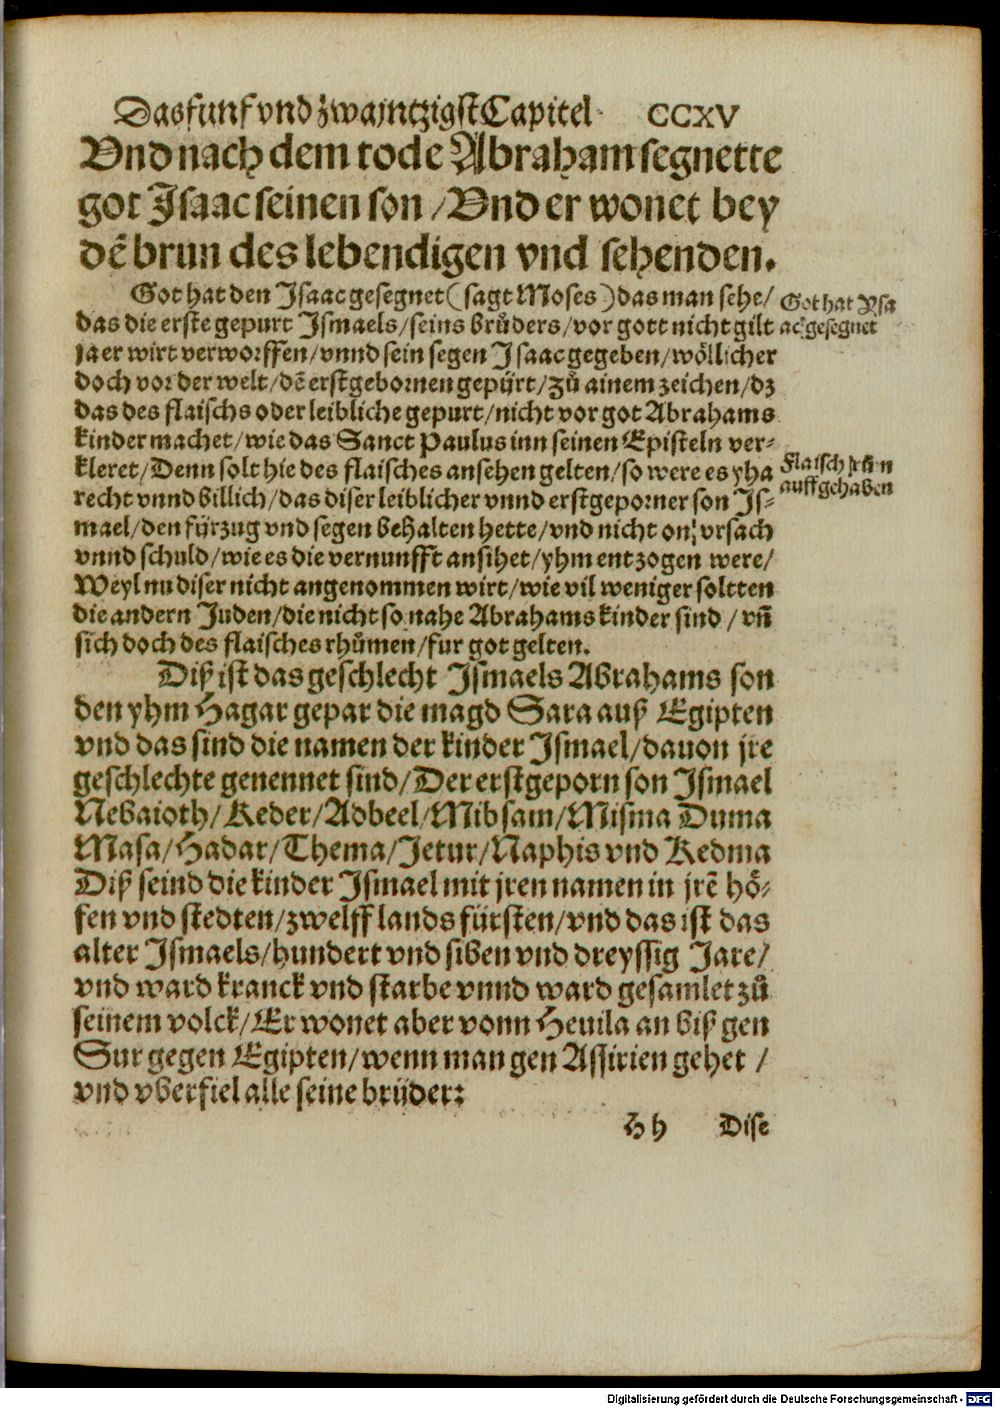 Das funf vnd zwaintzigst Capitel. CCXV
Vnd nach dem tode Abraham segnette
got Isaac seinen son / Vnd er wonet bey
dē brun des lebendigen vnd sehenden.
Got hat den Isaac gesegnet (sagt Moses) das man sehe /
Got hat Ysa
das die erste gepurt Ismaels / seins brůders / vor gott nicht gilt
ac gesegnet
ja er wirt verworffen / vnnd sein segen Isaac gegeben / wöllicher
doch vor der welt / dē erstgebornen gepürt / zů ainem zeichen / dz
das des flaischs oder leibliche gepurt / nicht vor got Abrahams
kinder machet / wie das Sanct Paulus inn seinen Episteln ver-
kleret / Denn solt hie des flaisches ansehen gelten / so were es yha
Flaisch rům
recht vnnd billich / das diser leiblicher vnnd erstgeporner son Is-
auffgehaben
mael / den fürzug vnd segen behalten hette / vnd nicht on vrsach
vnnd schuld / wie es die vernunfft ansihet / yhm entzogen were /
Weyl nu diser nicht angenommen wirt / wie vil weniger soltten
die andern Juden / die nicht so nahe Abrahams kinder sind / vñ
sich doch des flaisches rhůmen / fur got gelten.
Diß ist das geschlecht Ismaels Abrahams son
den yhm Hagar gepar die magd Sara auß Egipten
vnd das sind die namen der kinder Ismael / dauon jre
geschlechte genennet sind / Der erstgeporn son Ismael
Nebaioth / Keder / Adbeel / Mibsam / Misma Duma
Masa / Hadar / Thema / Jetur / Naphis vnd Kedma
Diß seind die kinder Ismael mit jren namen in jrē hö-
fen vnd stedten / zwelff lands fürsten / vnd das ist das
alter Ismaels / hundert vnd siben vnd dreyssig Jare /
vnd ward kranck vnd starbe vnnd ward gesamlet zů
seinem volck / Er wonet aber vonn Heuila an biß gen
Sur gegen Egipten / wenn man gen Assirien gehet /
vnd vberfiel alle seine brüder:
Hh Dise
Digitalisierung gefördert durch die Deutsche Forschungsgemeinschaft - DFG